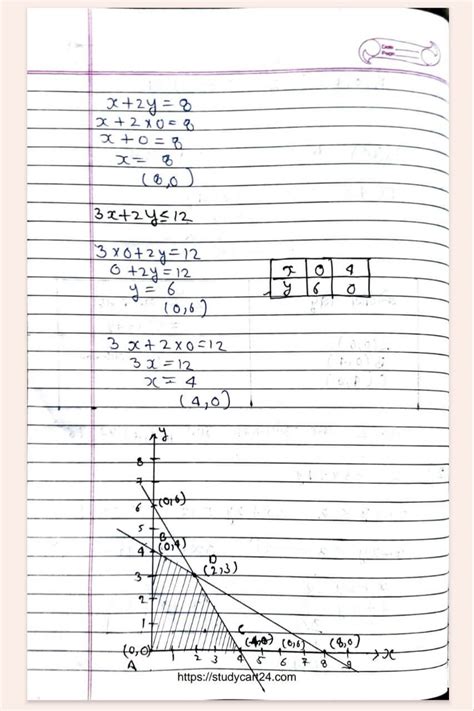 Date
Page
x+2y=8
x+2×0=8
x+0=8
x= 8
(8,0)
3x+2y≤12
3×0+2y=12
0+2y=12
y= 6
(0,6)
x 0 4
y 6 0
3x+2×0=12
3x=12
x=4
(4,0)
y
8
7
6 (0,6)
5
B
4 (0,4)
D
3 (2,3)
2
1
C
(0,0) (0,6) (8,0)
A 1 2 3 4 5 6 7 8 9 x
https://studycart24.com